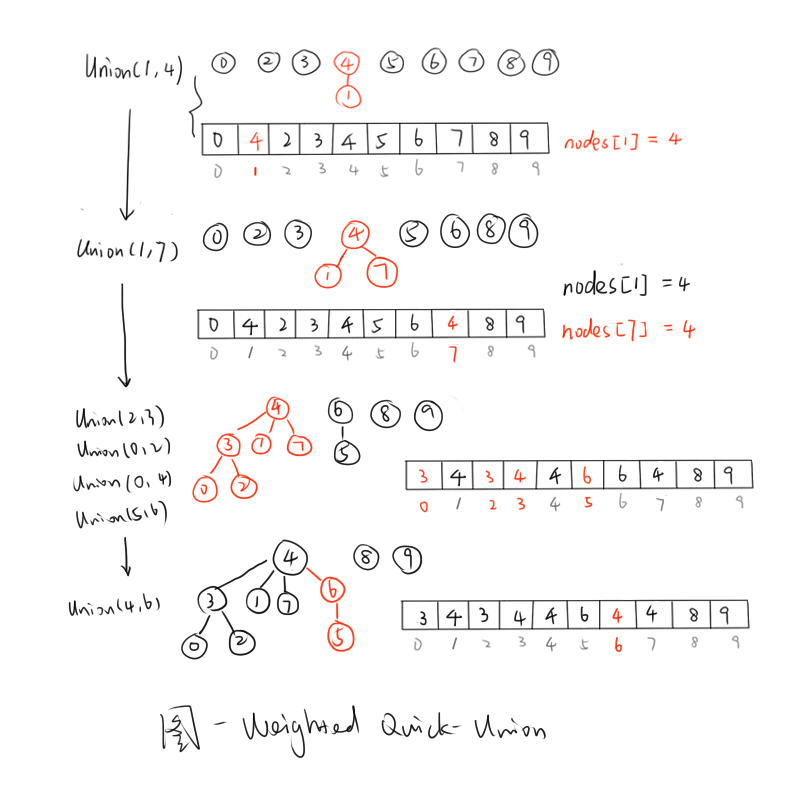 Union(1,4)
0 2 3 4 5 6 7 8 9
1
0 4 2 3 4 5 6 7 8 9
nodes[1] = 4
0 1 2 3 4 5 6 7 8 9
Union(1,7)
0 2 3 4 5 6 8 9
1 7
nodes[1] = 4
0 4 2 3 4 5 6 4 8 9
nodes[7] = 4
0 1 2 3 4 5 6 7 8 9
Union(2,3)
Union(0,2)
Union(0,4)
Union(5,6)
4 6 8 9
3 1 7 5
0 2
3 4 3 4 4 6 6 4 8 9
0 1 2 3 4 5 6 7 8 9
Union(4,6)
4 8 9
3 1 7 6
0 2 5
3 4 3 4 4 6 4 4 8 9
0 1 2 3 4 5 6 7 8 9
图 - Weighted Quick-Union